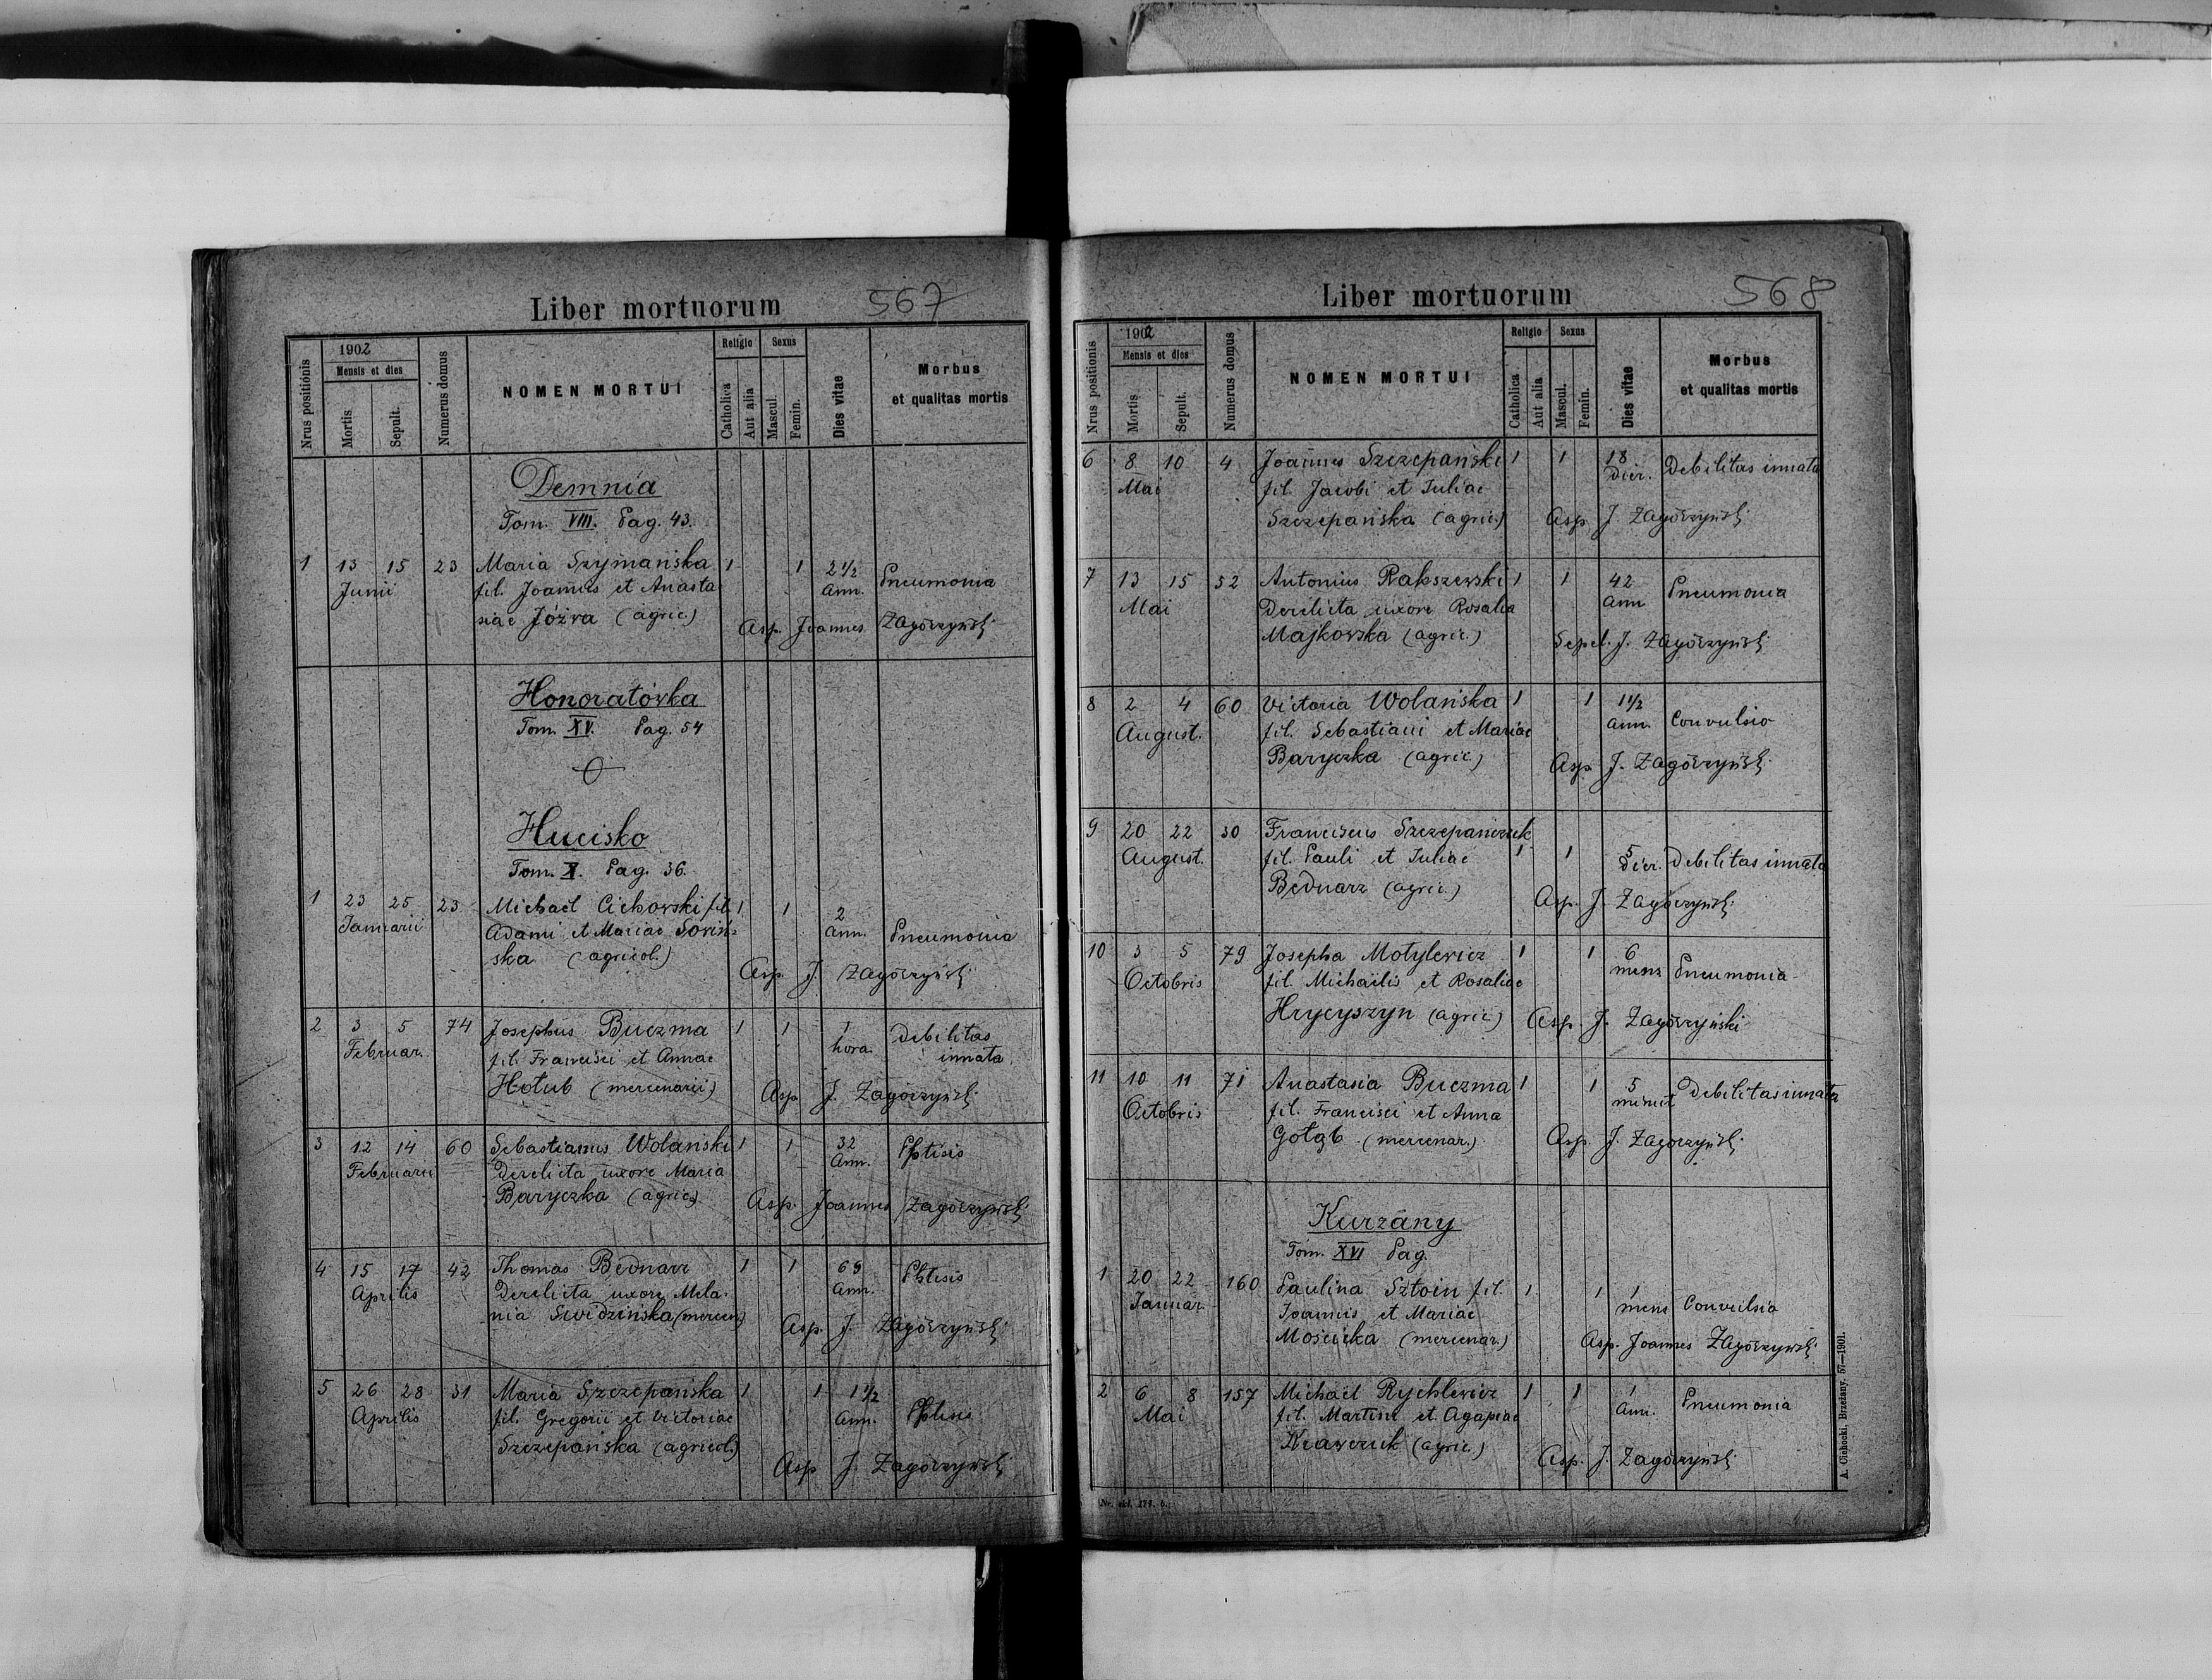 Liber mortuorum 567
Nrus positionis
1902
Mensis et dies
Mortis
Sepult.
Numerus domus
NOMEN MORTUI
Religio
Catholica
Aut alia
Sexus
Mascul.
Femin.
Dies vitae
Morbus
et qualitas mortis
Demnia
Tom. VIII. Pag. 43.
1 13 15 23 Maria Szymańska 1 1 2 1/2 Pneumonia
Junii fil. Joannis et Anasta Ann.
siae Józwa (agric) Asp. Joannes Zagórzyński
Honoratówka
Tom. XV. Pag. 54
Hucisko
Tom. X. Pag. 36.
1 23 25 23 Michael Cichowski fil. 1 1 2
Januarii Adami et Mariae Ann. Pneumonia
ska (agricol.) Asp. J. Zagórzyński
2 3 5 74 Josephus Buczma 1 1 1 Debilitas
Februar. fil. Francisci et Annae hora. innata
Hołub (mercenarii) Asp. J. Zagórzyński
3 12 14 60 Sebastianus Wolański 1 1 32 Phtisis
Februarii Derelicta uxore Maria Ann.
Baryczka (agric) Asp. Joannes Zagórzyński
4 15 17 42 Thomas Bednarz 1 1 Phtisis
Aprilis Derelicta uxore Mela- Ann.
nia Swidzińska (mercen) Asp. J. Zagórzyński
5 26 28 31 Maria Szczepańska 1 1 1 1/2
Aprilis fil. Gregorii et Victoriae Ann. Phtisis
Szczepańska (agricol.)
Asp J. Zagórzyński
Liber mortuorum 568
Nrus positionis
1902
Mensis et dies
Mortis
Sepult.
Numerus domus
NOMEN MORTUI
Religio
Catholica
Aut alia
Sexus
Mascul.
Femin.
Dies vitae
Morbus
et qualitas mortis
6 8 10 4 Joannes Szczepański 1 1 18 Debilitas innata
Mai fil. Jacobi et Juliae Dier.
Szczepańska (agric.) Asp. J. Zagórzyński
7 13 15 52 Antonius Rakszewski 1 1 42 Pneumonia
Mai Derelicta uxore Rosalia Ann
Majkowska (agric.) Sepel. J. Zagórzyński
8 2 4 60 Victoria Wolańska 1 1 1 1/2
August. fil. Sebastiani et Mariae Ann. Convulsio
Baryczka (agric.) Asp J. Zagórzyński
9 20 22 30 Franciscus Szczepańczuk
August. fil. Pauli et Juliae 1 1 5 Dier. Debilitas innata
Bednarz (agric.) Asp. J. Zagórzyński
10 3 5 79 Josepha Motylewicz 1 1 6
Octobris fil. Michaelis et Rosaliae mens Pneumonia
Hrycyszyn (agric) Asp. J. Zagórzyński
11 10 11 71 Anastasia Buczma 1 1 5 Debilitas innata
Octobris fil. Francisci et Anna minut
Gołąb (mercenar.) Asp. J. Zagórzyński
Kurzány
Tom. XVI Pag.
1 20 22 160 Paulina Sztoin fil. 1 1 1
Januar. Joannis et Mariae mens Convulsia
Mościcka (mercenar.) Asp. Joannes Zagórzyński
2 6 8 157 Michael Rychlewicz 1 1 1 Pneumonia
Mai fil. Martini et Agapiae Ann.
Krawczuk (agric.) Asp. J. Zagórzyński
A. Cichocki, Brzeżany. 57—1901.